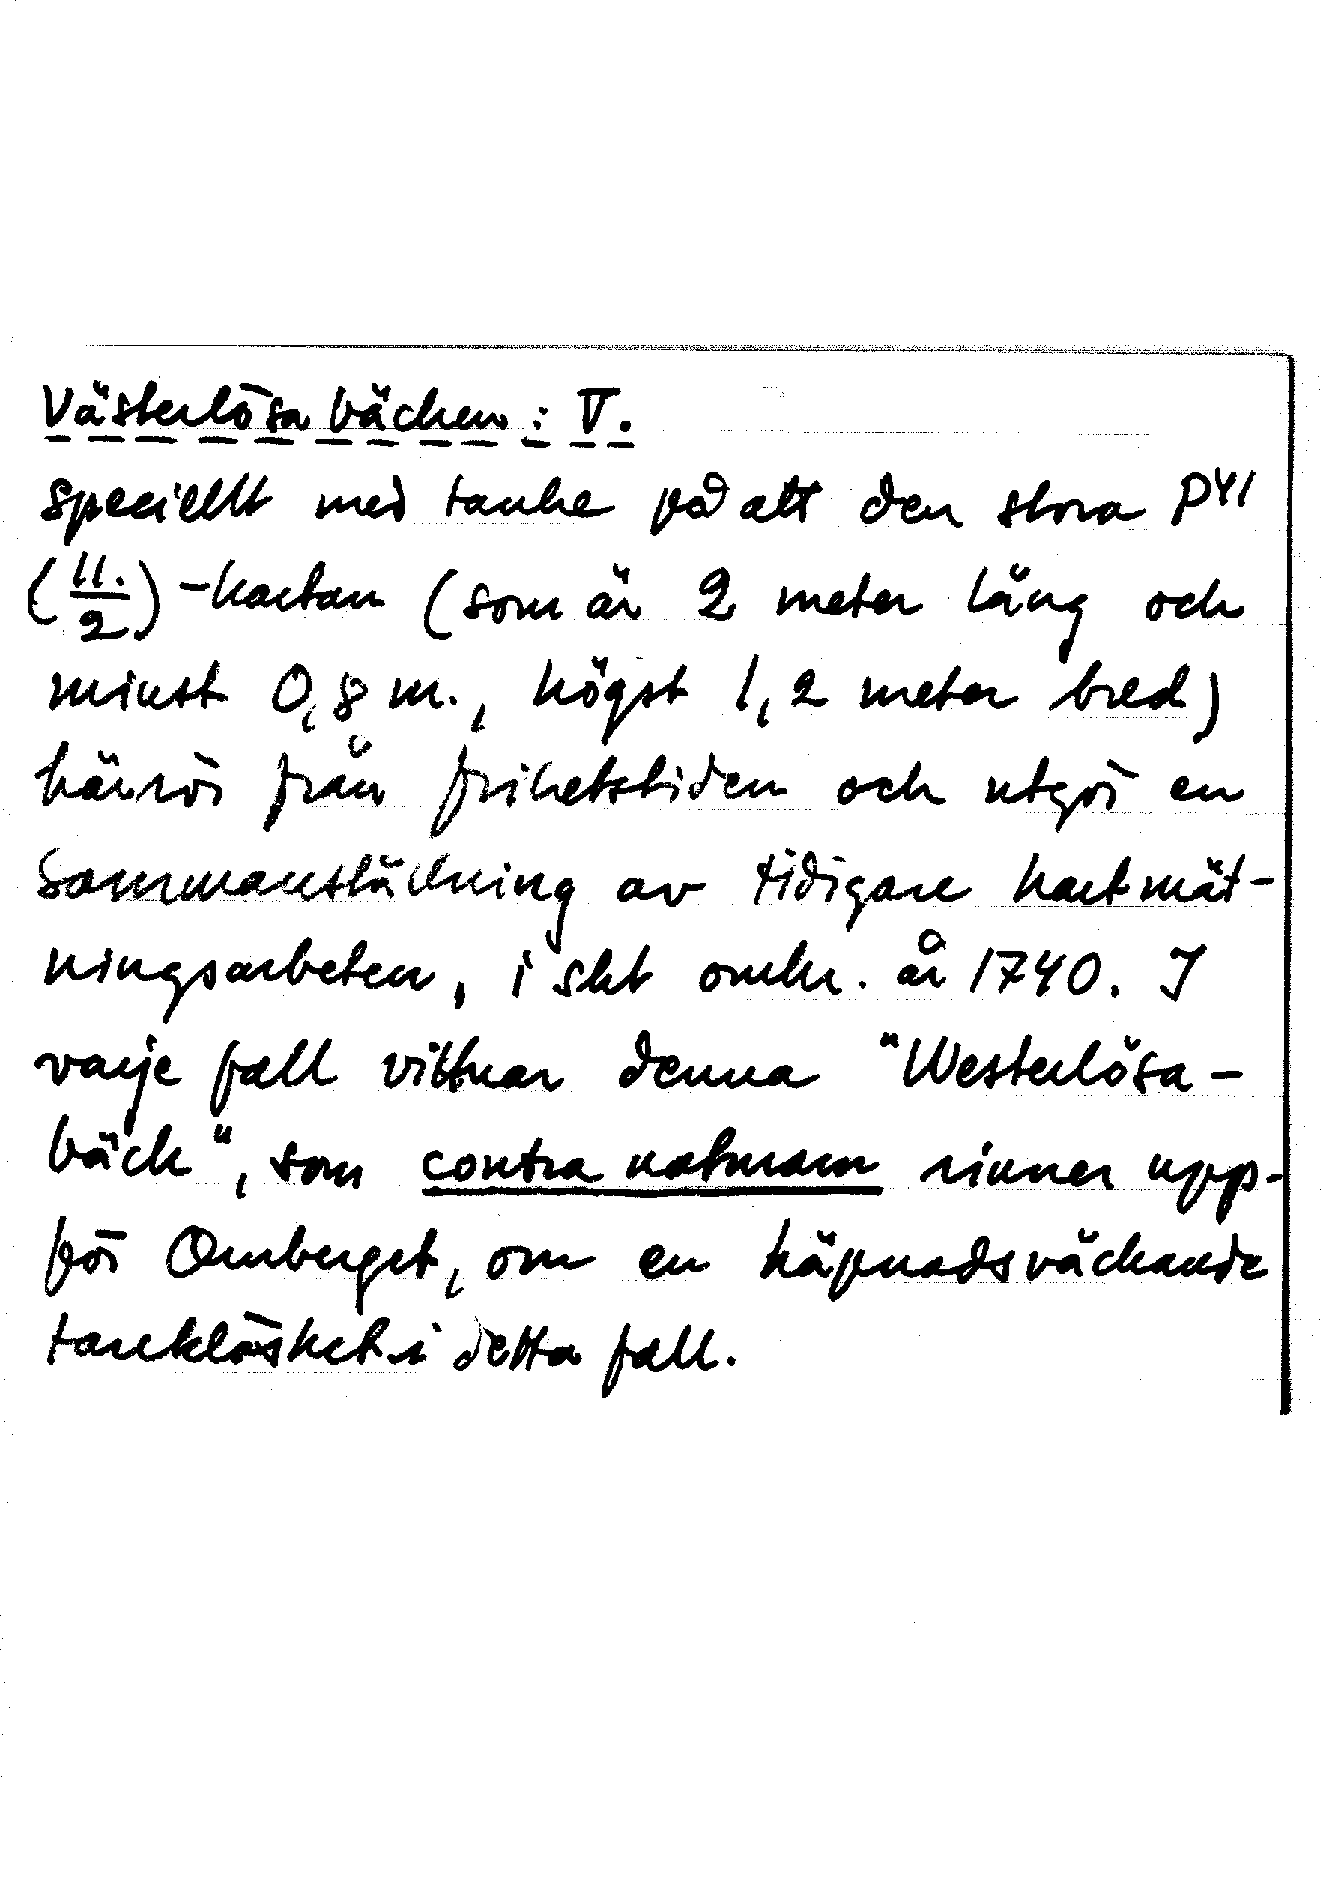 Västerlösa bäcken: V.
speciellt med tanke på att den stora P41
(11./2) -kartan (som är 2 meter lång och
minst 0,8 m., högst 1,2 meter bred)
härrör från frihetstiden och utgör en
sammanställning av tidigare kartmät-
ningsarbeten, i skt omkr. år 1740. I
varje fall vittnar denna "Westerlösa-
bäck", som contra naturam rinner upp-
för Omberget, om en häpnadsväckande
tanklöshet i detta fall.